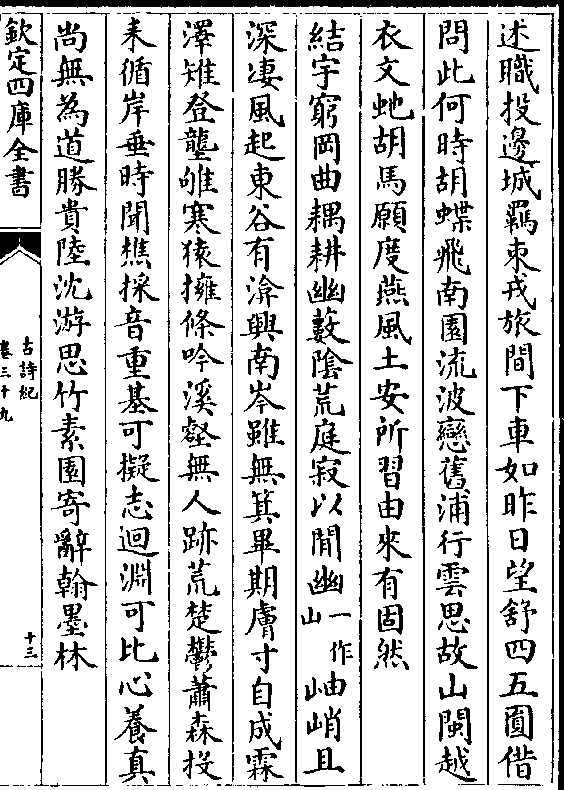 述職投邊城羈束戎旅間下車如昨日望舒四五圓借
問此何時胡蝶飛南園流波戀舊浦行雲思故山閩越
衣文虵胡馬願度燕風土安所習由來有固然
結宇窮岡曲耦耕幽藪陰荒庭寂以閒幽一作山岫峭且
深凄風起東谷有渰興南岑雖無箕畢期膚寸自成霖
澤雉登壟雊寒猿擁條吟溪壑無人跡荒楚鬱蕭森投
耒循岸垂時聞樵採音重基可擬志迴淵可比心養真
尚無為道勝貴陸沈游思竹素園寄辭翰墨林
欽定四庫全書
古詩紀
卷三十九
十三